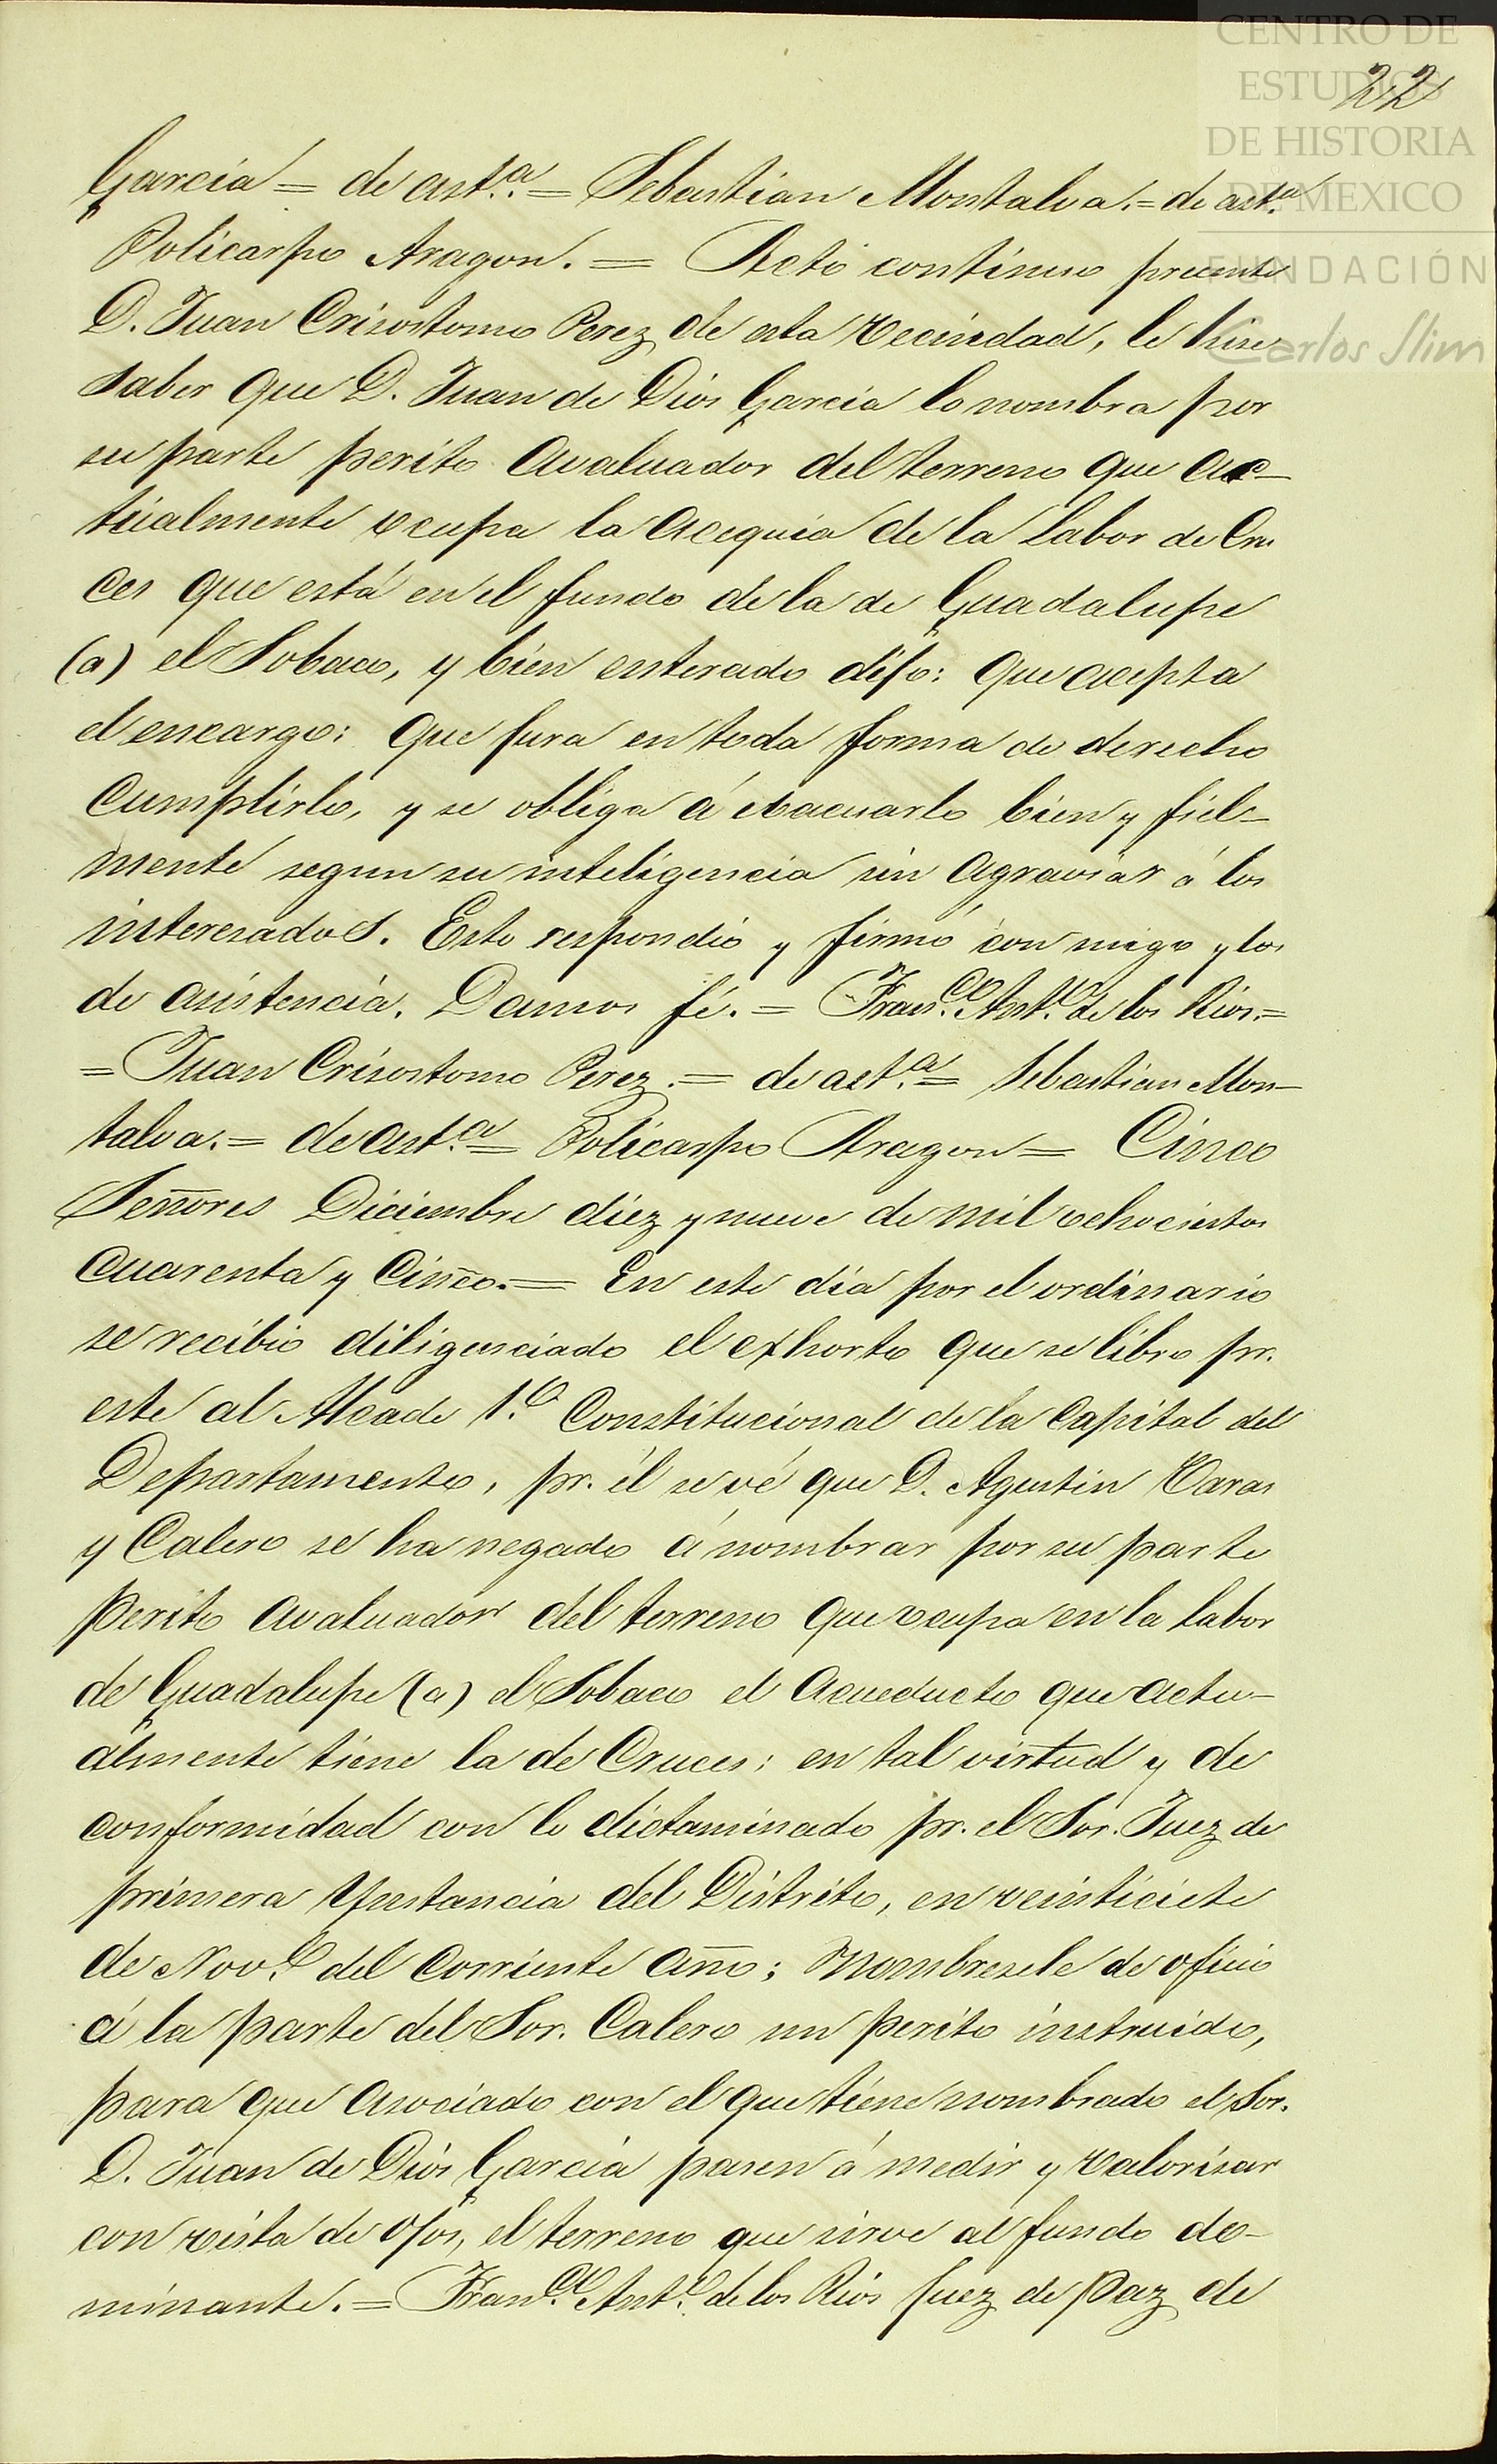 CENTRO DE
ESTUDIOS
DE HISTORIA
DE MEXICO
FUNDACIÓN
Carlos Slim
22
García = de ast.ª = Sebastian Montalva. = de ast.ª
Policarpo Aragon. = Acto continuo presente
D. Juan Crisostomo Perez de esta vecindad, le hice
saber que D. Juan de Dios García lo nombra por
su parte perito avaluador del terreno que ac-
tualmente ocupa la acequia de la Labor de Cru
ces que está en el fundo de la de Guadalupe
(a) el Sobaco, y bien enterado dijo: que acepta
el encargo: que jura en toda forma de derecho
cumplirlo, y se obliga á evacuarlo bien y fiel-
mente segun su inteligencia sin agraviar á los
interesados. Esto respondió y firmó con migo y los
de asistencia. Damos fé. = Fran.co Ant.o de los Rios. =
= Juan Crisostomo Perez. = de ast.ª = Sebastian Mon-
talva. = de ast.ª = Policarpo Aragon = Cinco
Señores Diciembre diez y nueve de mil ochocientos
cuarenta y cinco. = En este día por el ordinario
se recibio diligenciado el exhorto que se libro pr.
este al Alcade 1.o Constitucional de la Capital del
Departamento, pr. él se vé que D. Agustin Varas
y Calero se ha negado á nombrar por su parte
perito avaluador del terreno que ocupa en la labor
de Guadalupe (a) el Sobaco el acueducto que actu-
almente tiene la de Cruces; en tal virtud y de
conformidad con lo dictaminado pr. el Sor. Juez de
primera Ynstancia del Distrito, en veinticiete
de Nov.e del corriente año; nombresele de oficio
á la parte del Sor. Calero un perito instruido,
para que asociado con el que tiene nombrado el Sor.
D. Juan de Dios García pasen á medir y valorisar
con vista de ojos, el terreno que sirve al fundo do-
minante. = Fran.co Ant.o de los Rios juez de paz de